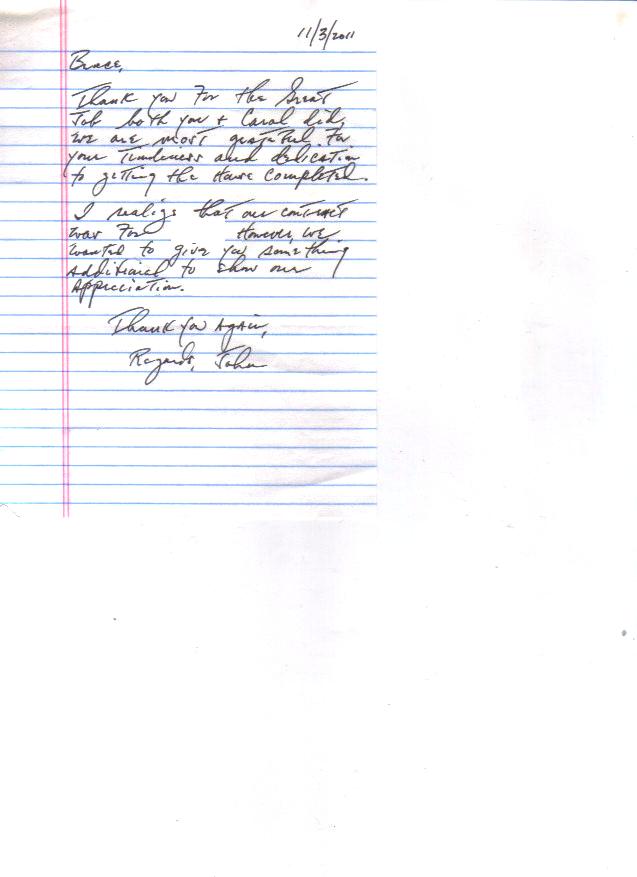 11/3/2011
Bruce,
Thank you For the Great
Job both you + Carol did,
we are most grateful For
your Timeliness and dedication
to getting the House Completed.
I realize that our contract
was For However, we
wanted to give you something
additional to show our
Appreciation.
Thank you Again,
Regards, John